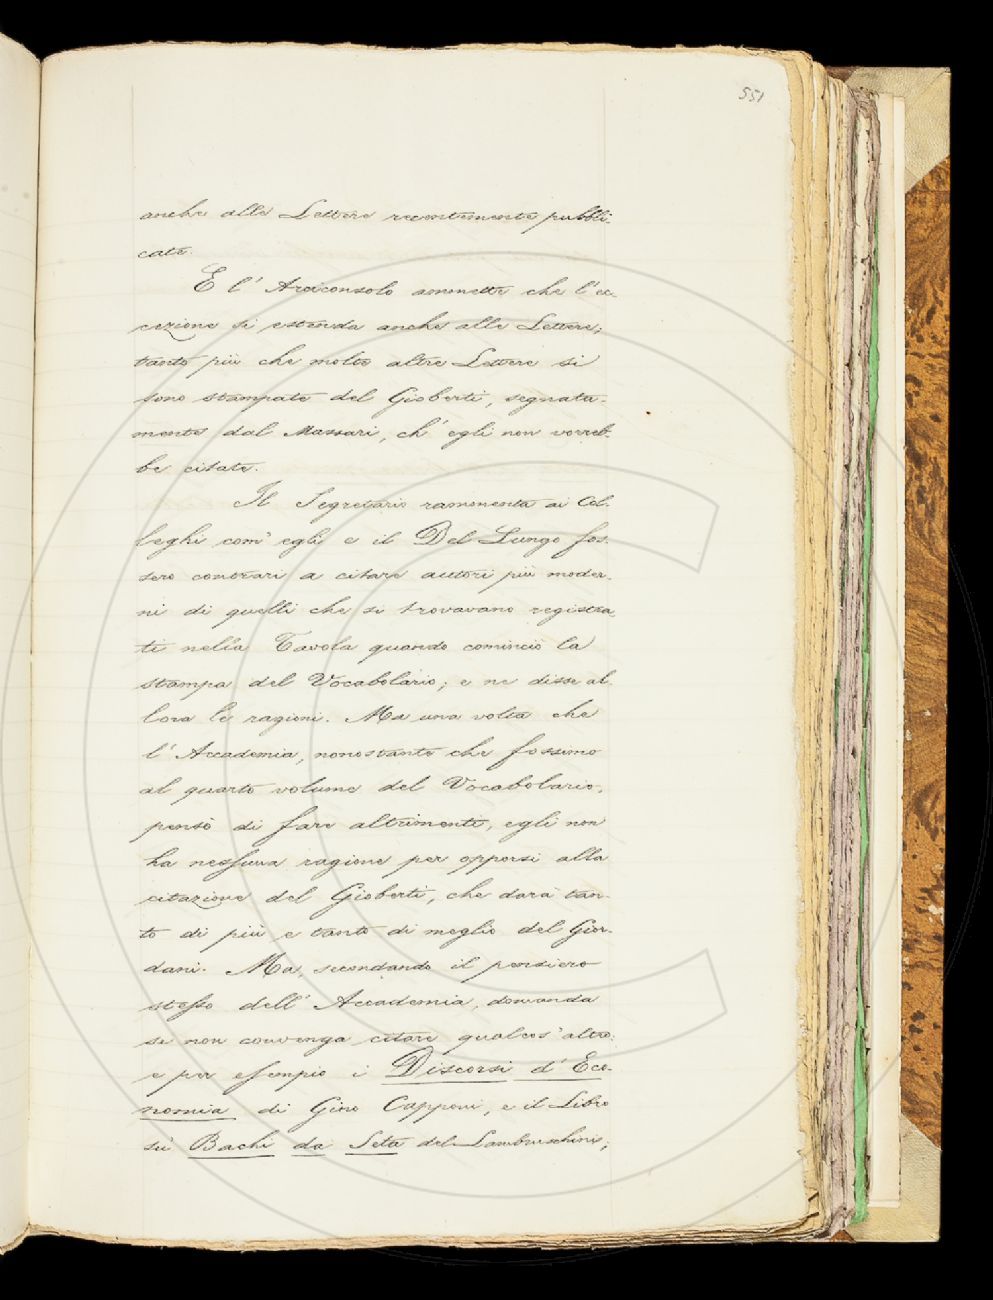 551
anche alle Lettere recentemente pubbli-
cate.
E l' Arciconsolo ammette che l'ec-
cezione si estenda anche alle Lettere;
tanto più che molte altre Lettere si
sono stampate del Gioberti, segnata-
mente dal Massari, ch' egli non vorreb-
be citate.
Il Segretario rammenta ai Col-
leghi com' egli e il Del Lungo fos-
sero contrari a citare autori più moder-
ni di quelli che si trovavano registra-
ti nella Tavola quando cominciò la
stampa del Vocabolario; e ne disse al-
lora le ragioni. Ma una volta che
l' Accademia, nonostante che fossimo
al quarto volume del Vocabolario,
pensò di fare altrimenti, egli non
ha nessuna ragione per opporsi alla
citazione del Gioberti, che darà tan-
to di più e tanto di meglio del Gior-
dani. Ma, secondando il pensiero
stesso dell' Accademia, domanda
se non convenga citare qualcos' altro:
e per esempio i Discorsi d' Eco-
nomia di Gino Capponi, e il Libro
sù Bachi da Seta del Lambruschini;